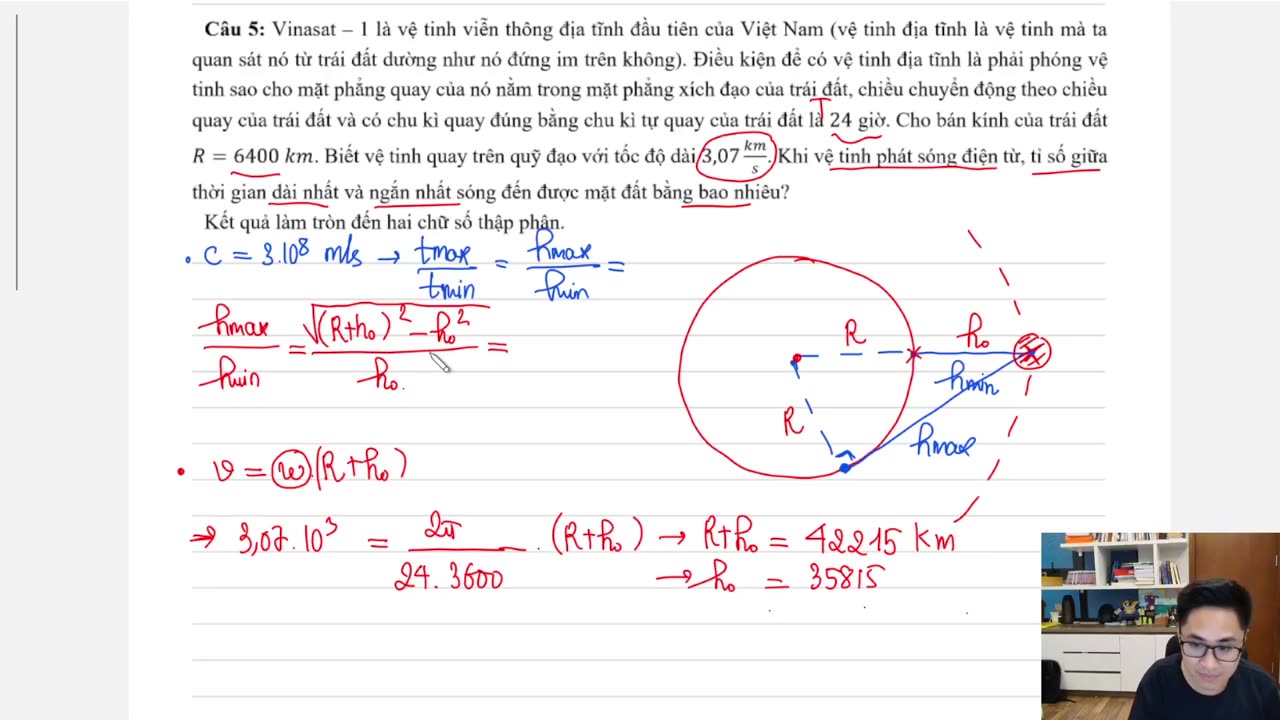 Câu 5: Vinasat – 1 là vệ tinh viễn thông địa tĩnh đầu tiên của Việt Nam (vệ tinh địa tĩnh là vệ tinh mà ta
quan sát nó từ trái đất dường như nó đứng im trên không). Điều kiện để có vệ tinh địa tĩnh là phải phóng vệ
tinh sao cho mặt phẳng quay của nó nằm trong mặt phẳng xích đạo của trái đất, chiều chuyển động theo chiều
T
quay của trái đất và có chu kì quay đúng bằng chu kì tự quay của trái đất là 24 giờ. Cho bán kính của trái đất
R = 6400 km. Biết vệ tinh quay trên quỹ đạo với tốc độ dài 3,07 km/s. Khi vệ tinh phát sóng điện từ, tỉ số giữa
thời gian dài nhất và ngắn nhất sóng đến được mặt đất bằng bao nhiêu?
Kết quả làm tròn đến hai chữ số thập phân.
• C = 3.10⁸ m/s → tmax/tmin = hmax/hmin =
hmax/hmin = √((R+h₀)² – h₀²)/h₀. =
R
h₀
hmin
R
hmax
• v = ω.(R+h₀)
⇒ 3,07.10³ = 2π/24.3600 . (R+h₀) → R+h₀ = 42215 Km
→ h₀ = 35815